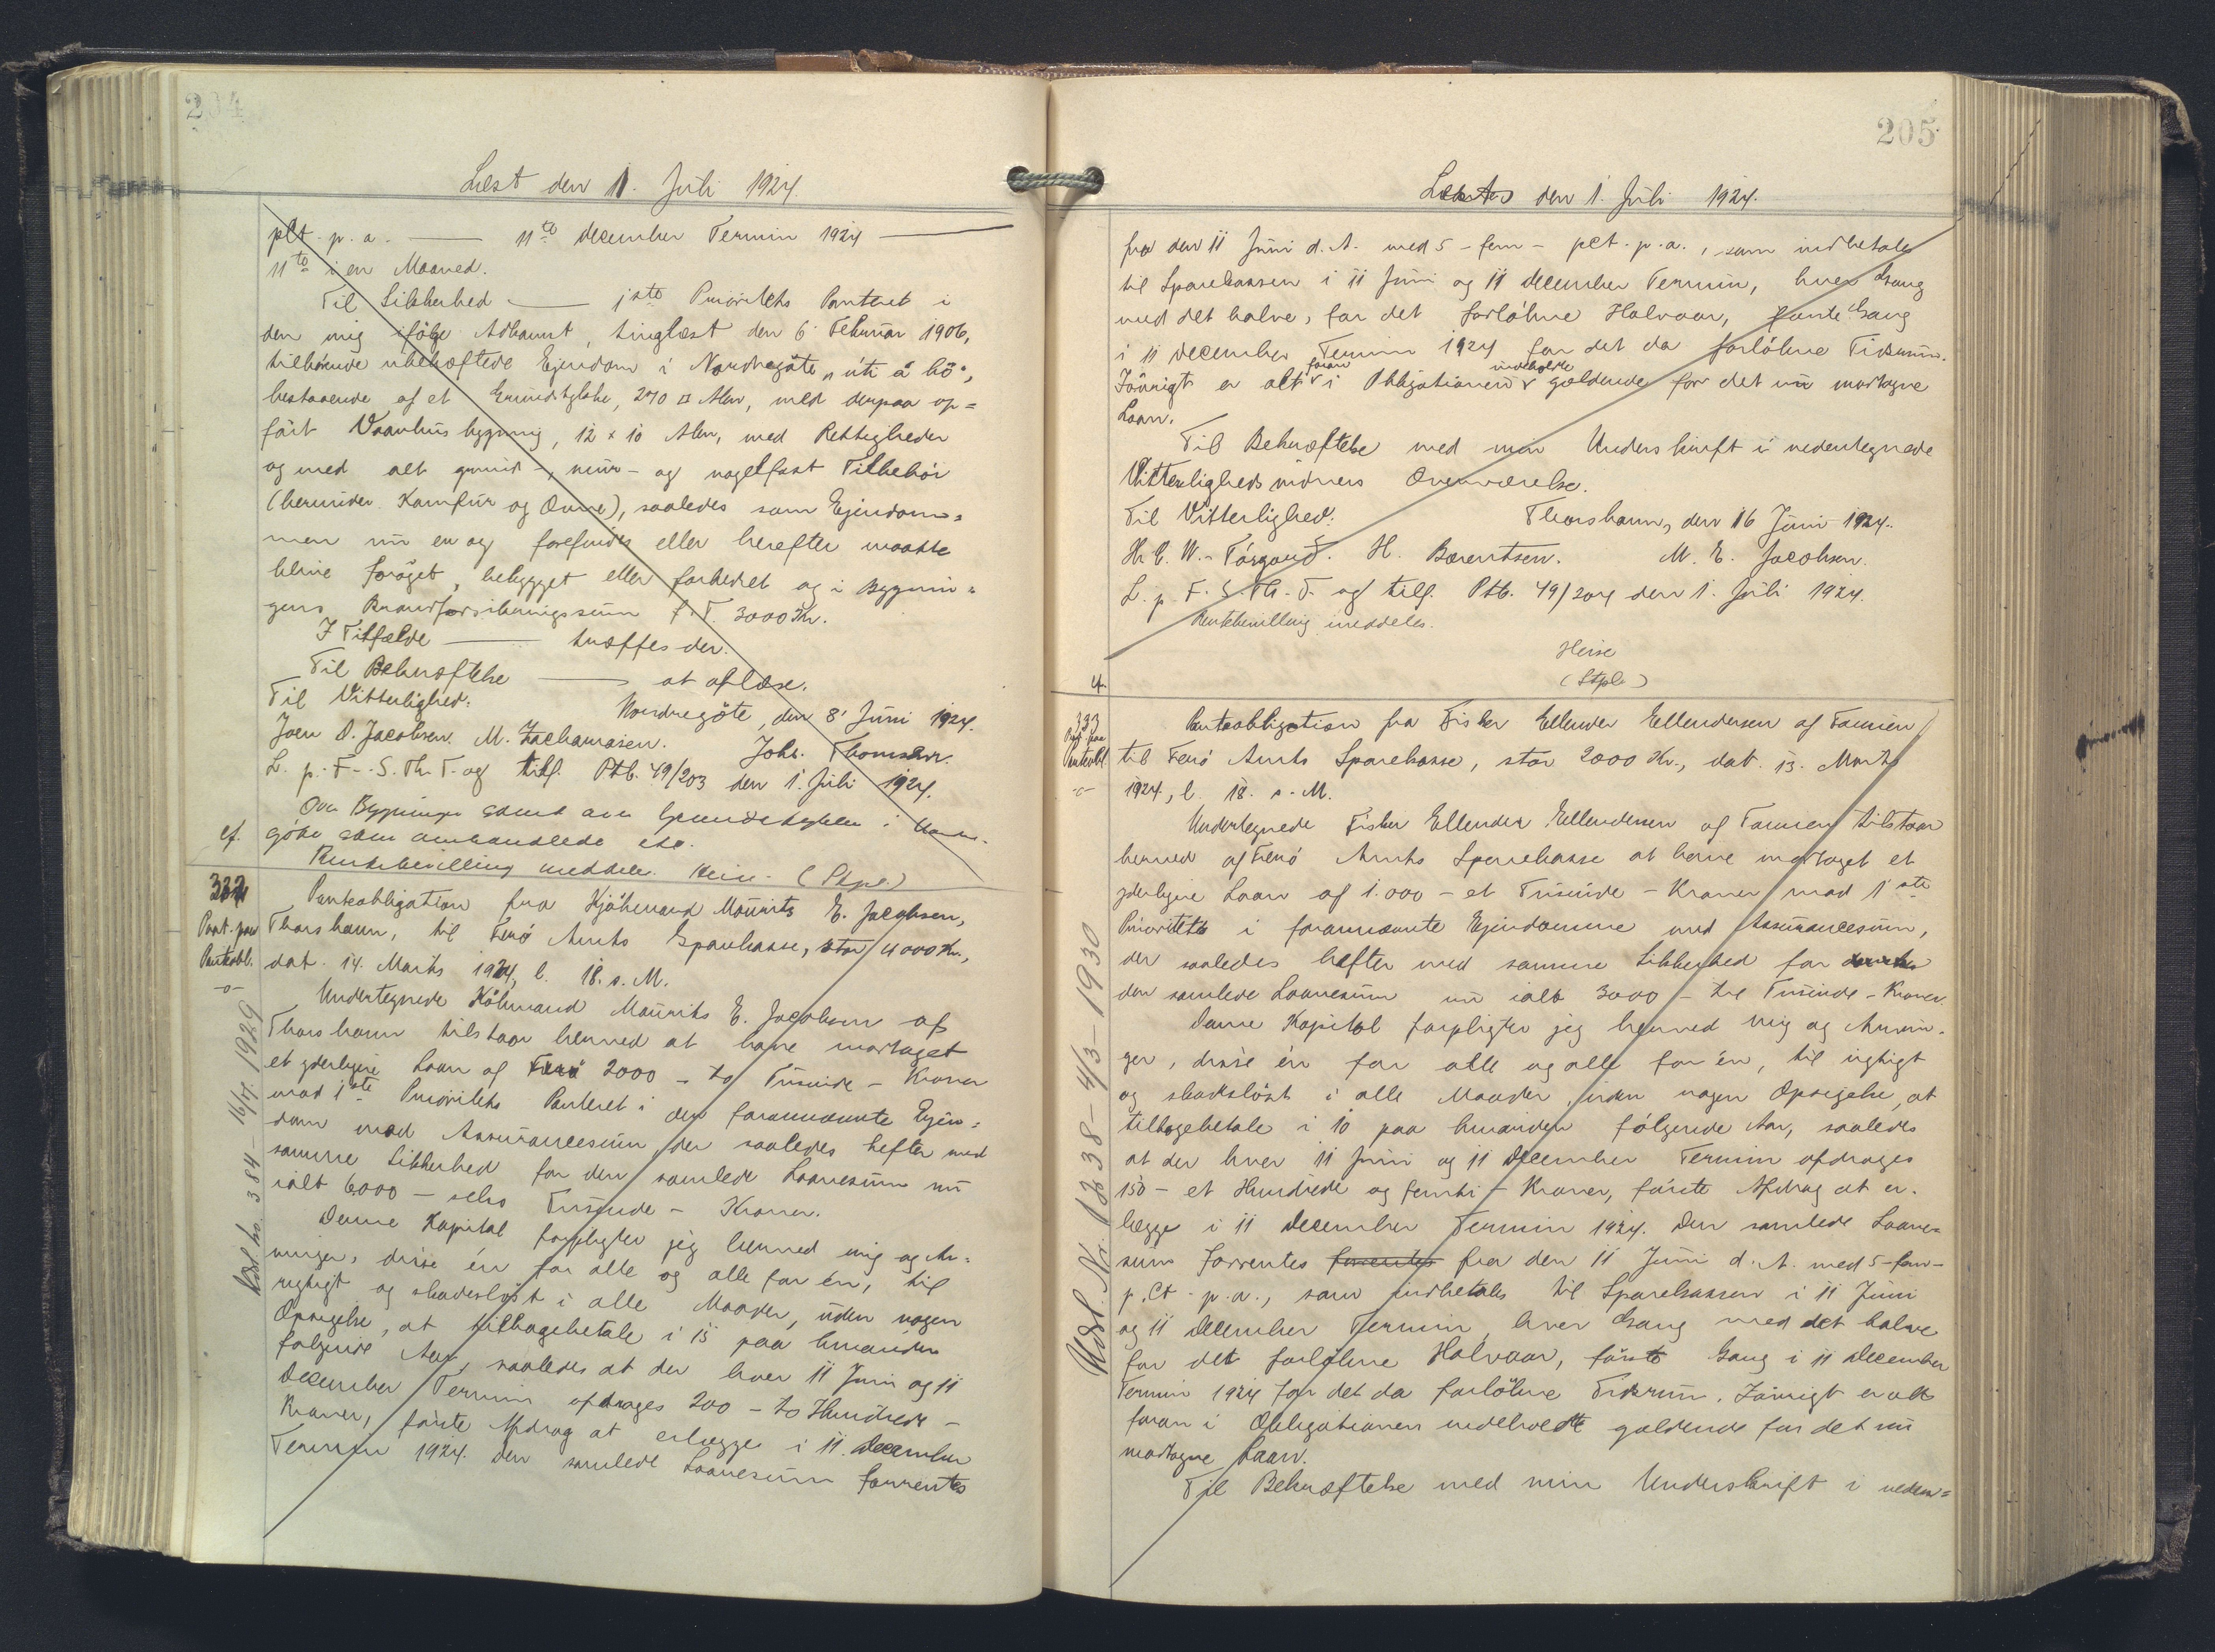 204
Læst den 1. Juli 1924
pCt. p. a. — 11te December Termin 1924 —
11te i en Maaned.
Til Sikkerhed — 1ste Prioritets Panteret i
den mig ifölge Adkomst, tinglæst den 6' Februar 1906,
tilhörende ubehæftede Ejendom i Nordregöte „úti á bö",
bestaaende af et Grundstykke, 270 □ Alen, med derpaa op=
fört Vaanhusbygning, 12 x 10 Alen, med Rettigheder
og med alt grund-, mur- og nagelfast Tilbehör
(herunder Komfur og Ovne), saaledes som Ejendom=
men nu er og forefindes eller herefter maatte
blive foröget, bebygget eller forbedret og i Bygnin=
gens Brandforsikringssum f. T. 3000 Kr.
I Tilfælde — træffes der.
Til Bekræftelse — at aflæse.
Til Vitterlighed: Nordregöte, den 8' Juni 1924.
Joen D. Jacobsen. M. Zachariasen. Johs. Thomsen.
L. p. F. S. Th. T. og tilf. Ptb. 49/203 den 1' Juli 1924.
Ovn Bygninger samt ovn Grundstykke i
cf. göte som omhandlede etc.
Rentebevilling meddeles. Heise. (Stpl.)
332 Panteobligation fra Kjöbmand Mourits E. Jacobsen,
Pant. paa Thorshavn, til Færö Amts Sparekasse, stor 4000 Kr.,
Panteobl. dat. 14. Marts 1924, l. 18. s. M.
-o- Undertegnede Köbmand Mourits E. Jacobsen af
Thorshavn tilstaar herved at have modtaget
et yderligere Laan af Færö 2000 - to Tusinde - Kroner
mod 1ste Prioritets Panteret i den forannævnte Ejen=
dom med Assurancesum der saaledes hefter med
samme Sikkerhed for den samlede Laanesum nu
ialt 6000 - seks Tusinde - Kroner.
Denne Kapital forpligter jeg herved mig og Ar=
vinger, disse én for alle og alle for én, til
rigtigt og skadeslöst i alle Maader, uden nogen
Opsigelse, at tilbagebetale i 15 paa hinanden
fölgende Aar, saaledes at der hver 11 Juni og 11
December Termin afdrages 200 - to Hundrede -
Kroner, förste Afdrag at erlægge i 11. December
Termin 1924. Den samlede Laanesum forrentes
Udsl. No. 384 - 16/4. 1929
205
Læst den 1. Juli 1924.
fra den 11 Juni d. A. med 5 - fem - pCt. p. a., som indbetales
til Sparekassen i 11 Juni og 11 December Termin, hver Gang
med det halve, for det forløbne Halvaar, förste Gang
i 11 December Termin 1924 for det da forløbne Tidsrum.
Iövrigt er alt foran i Obligationen indeholdte gældende for det nu modtagne
Laan.
Til Bekræftelse med min Underskrift i nedentegnede
Vitterlighedsvidners Overværelse.
Til Vitterlighed: Thorshavn, den 16 Juni 1924.
H. C. W. Tórgarð. H. Bærentsen. M. E. Jacobsen.
L. p. F. S. Th. T. og tilf. Ptb. 49/204 den 1. Juli 1924.
Rentebevilling meddeles.
Heise
cf. (Stpl.)
333 Panteobligation fra Fisker Ellender Ellendersen af Famien
Pant. paa Panteobl. til Færö Amts Sparekasse, stor 2000 Kr., dat. 13. Marts
-o- 1924, l. 18. s. M.
Undertegnede Fisker Ellender Ellendersen af Famien tilstaar
herved af Færö Amts Sparekasse at have modtaget et
yderligere Laan af 1.000 - et Tusinde - Kroner mod 1ste
Prioritets i forannævnte Ejendomme med Assurancesum,
der saaledes hefter med samme Sikkerhed for
den samlede Laanesum nu ialt 3000 - tre Tusinde - Kroner.
Denne Kapital forpligter jeg herved mig og Arvin=
ger, disse én for alle og alle for én, til rigtigt
og skadeslöst i alle Maader, uden nogen Opsigelse, at
tilbagebetale i 10 paa hinanden fölgende Aar, saaledes
at der hver 11 Juni og 11 December Termin afdrages
150 - et Hundrede og femti - Kroner, förste Afdrag at er-
lægge i 11 December Termin 1924. Den samlede Laane=
sum forrentes forrentes fra den 11 Juni d. A. med 5 - fem -
p. Ct. p. a., som indbetales til Sparekassen i 11 Juni
og 11 December Termin, hver Gang med det halve
for det forløbne Halvaar, förste Gang i 11 December
Termin 1924 for det da forløbne Tidsrum. Iövrigt er alt
foran i Obligationen indeholdte gældende for det nu
modtagne Laan.
Til Bekræftelse med min Underskrift i neden=
Udsl. Nr. 1338 - 4/3 - 1930